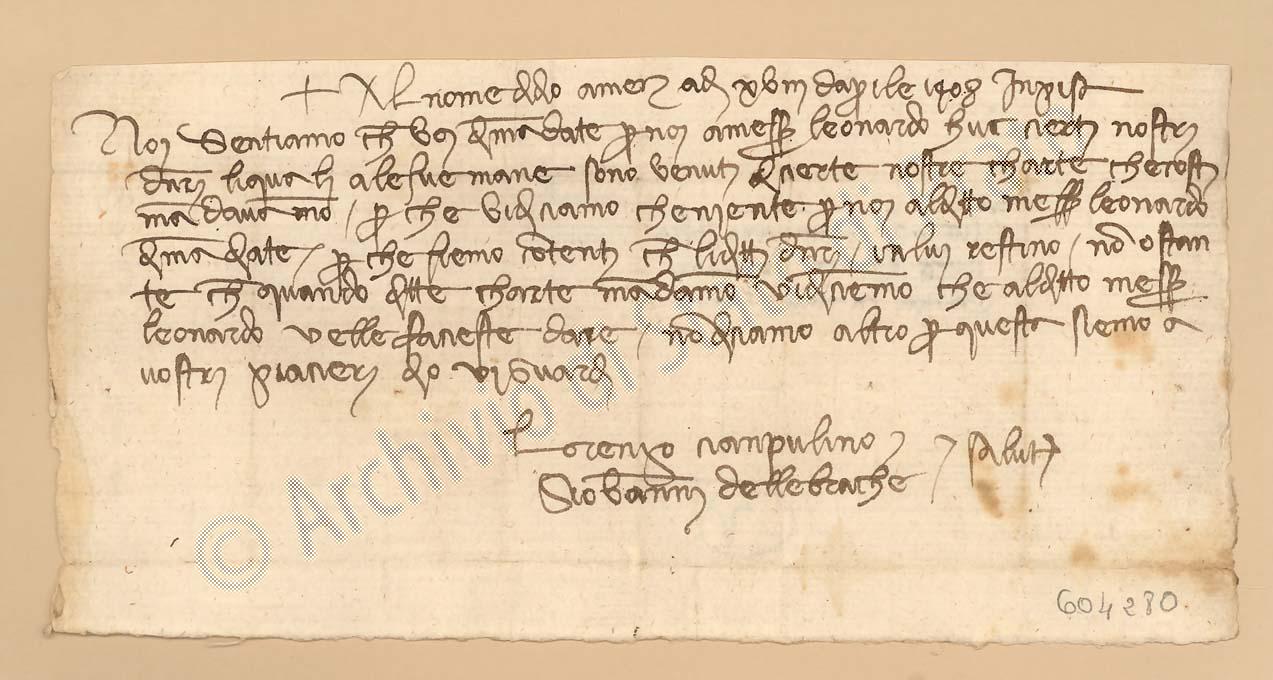 + Al nome d'dio amen ad xviii d'aprile 1408 In pisa
Noi Sentiamo che voi dima(n)date per noi a messer leonardo huc cierti nostri
dnri li quali a le sue mane sono venuti d cierte nostre charte che costi
ma(n)davamo / per che vi diciamo che niente per noi al ditto messer leonardo
dima(n)diate / per che siemo co(n)tenti che li ditti dnri / i(n) lui restino / no(n) ostan
te che quando ditte charte ma(n)damo vi diciemo che al ditto messer
leonardo velle faceste dare / no(n) diciamo altro per questa siemo a
vostri piacieri dio vi Guardi
Lorenzo cianpulino
Giovanni delle brache / salute
© Archivio di Stato di Prato
604280